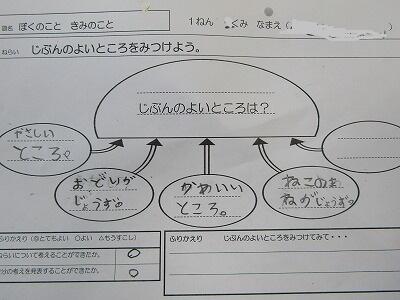 題名 ぼくのこと きみのこと
1ねん くみ なまえ( )
ねらい じぶんのよいところをみつけよう。
じぶんのよいところは?
やさしい
ところ。
おどりが
じょうず。
かわいい
ところ。
ねこのま
ねがじょうず。
ふりかえり(◎とてもよい 〇よい △もうすこし)
ねらいについて考えることができたか。 〇
自分の考えを発表することができたか。 〇
ふりかえり じぶんのよいところをみつけてみて・・・